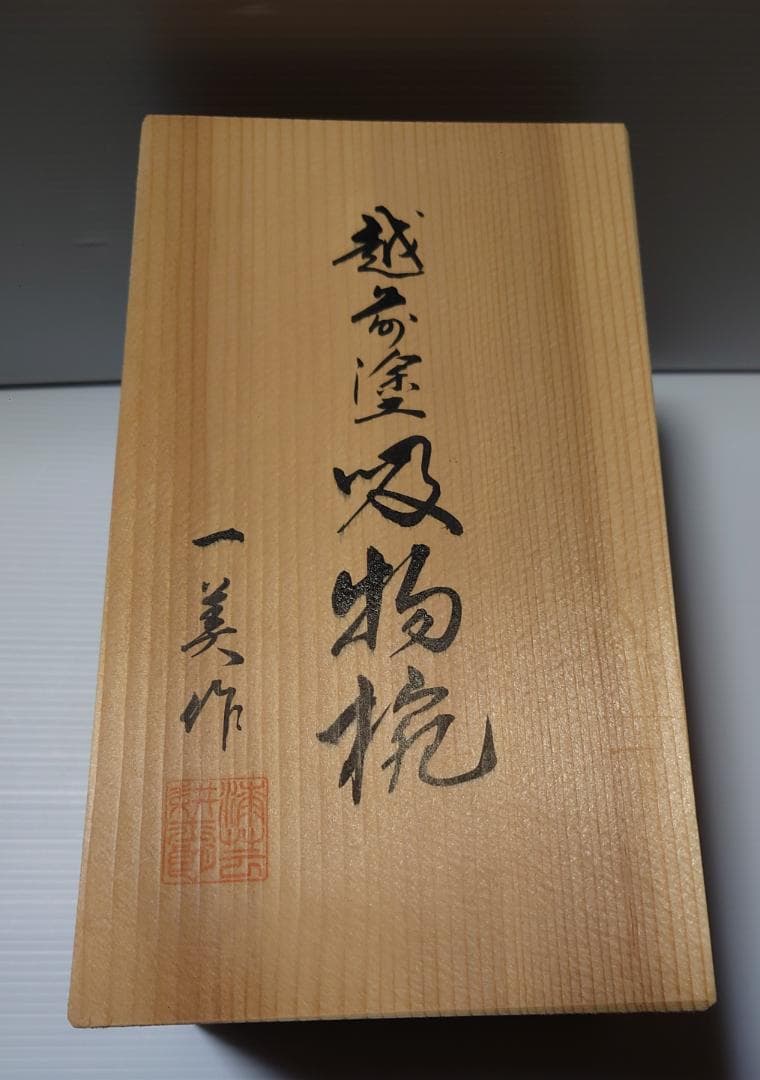 越前塗吸物椀
一美作